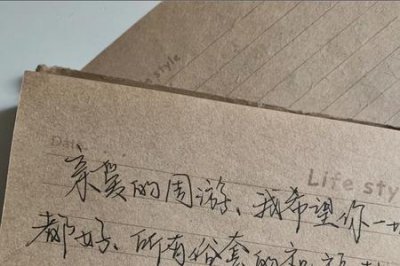 Life style
Date
Life sty
亲爱的周游、我希望你一切
都好、所有俗套的祝福